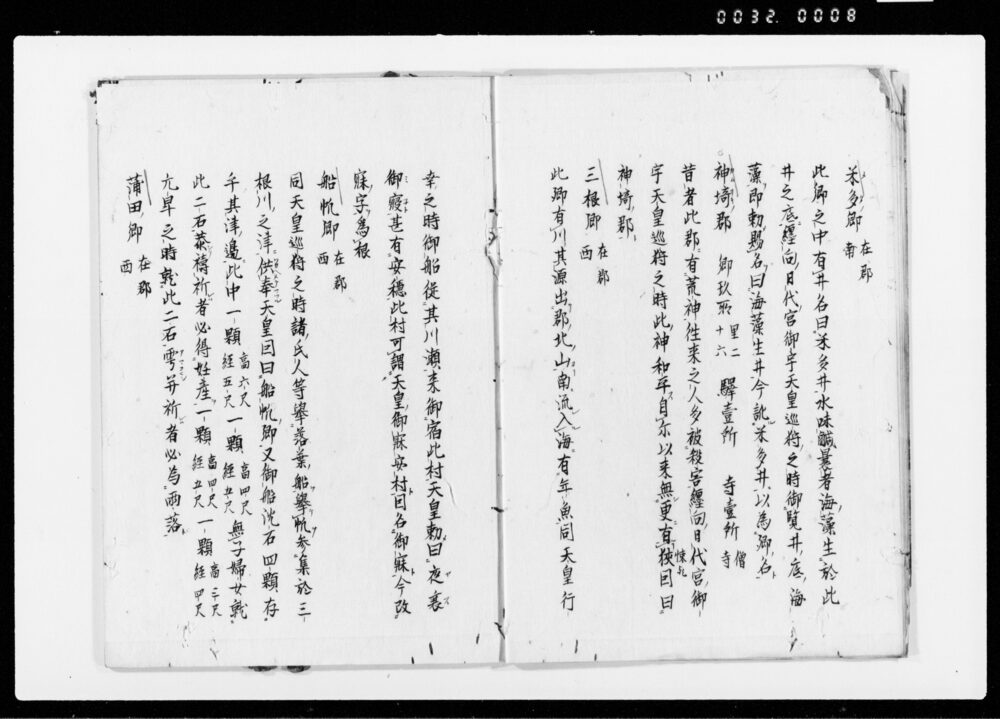 0032. 0008
米多郷 在郡南
此郷之中有井名曰米多井水味鹹曩者海藻生於此
井之底纒向日代宮御宇天皇巡狩之時御覧井底海
藻即勅賜名曰海藻生井今訛米多井以為郷名
神埼郡 郷玖所 里二十六 驛壹所 寺壹所 僧寺
昔者此郡有荒神往来之人多被殺害纒向日代宮御
宇天皇巡狩之時此神和平自尓以来無更有殃因曰
神埼郡
三根郷 在郡西
此郷有川其源出郡北山南流入海有年魚同天皇行
幸之時御船従其川瀬来御宿此村天皇勅曰夜裏
御寢甚有安穏此村可謂天皇御寐安村因名御寐今改
寐字為根
船帆郷 在郡西
同天皇巡狩之時諸氏人等擧落葉船擧帆参集於三
根川之津供奉天皇因曰船帆郷又御船沈石四顆存
于其津邉此中一顆 高六尺 径五尺 一顆 高四尺 径五尺 無子婦女就
此二石恭禱祈者必得妊産一顆 高四尺 径五尺 一顆 高三尺 径四尺
亢旱之時就此二石雩并祈者必為雨落
蒲田郷 在郡西